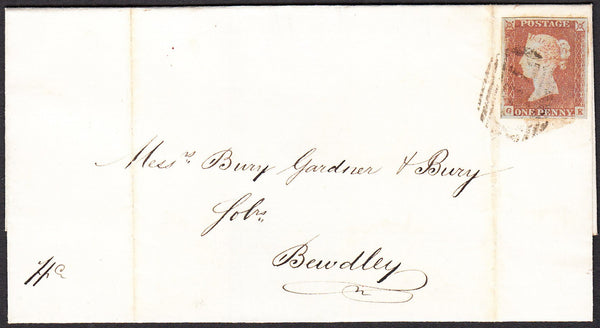 POSTAGE
G K
ONE PENNY
Messrs Bury Gardner & Bury
Solrs
Bewdley